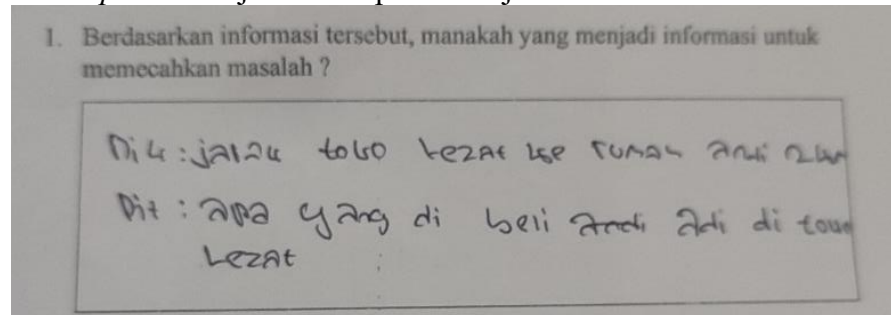 1. Berdasarkan informasi tersebut, manakah yang menjadi informasi untuk
memecahkan masalah ?
Dik : jarak toko Lezat ke rumah andi 2km
Dit : apa yang di beli Andi Adi di
Lezat